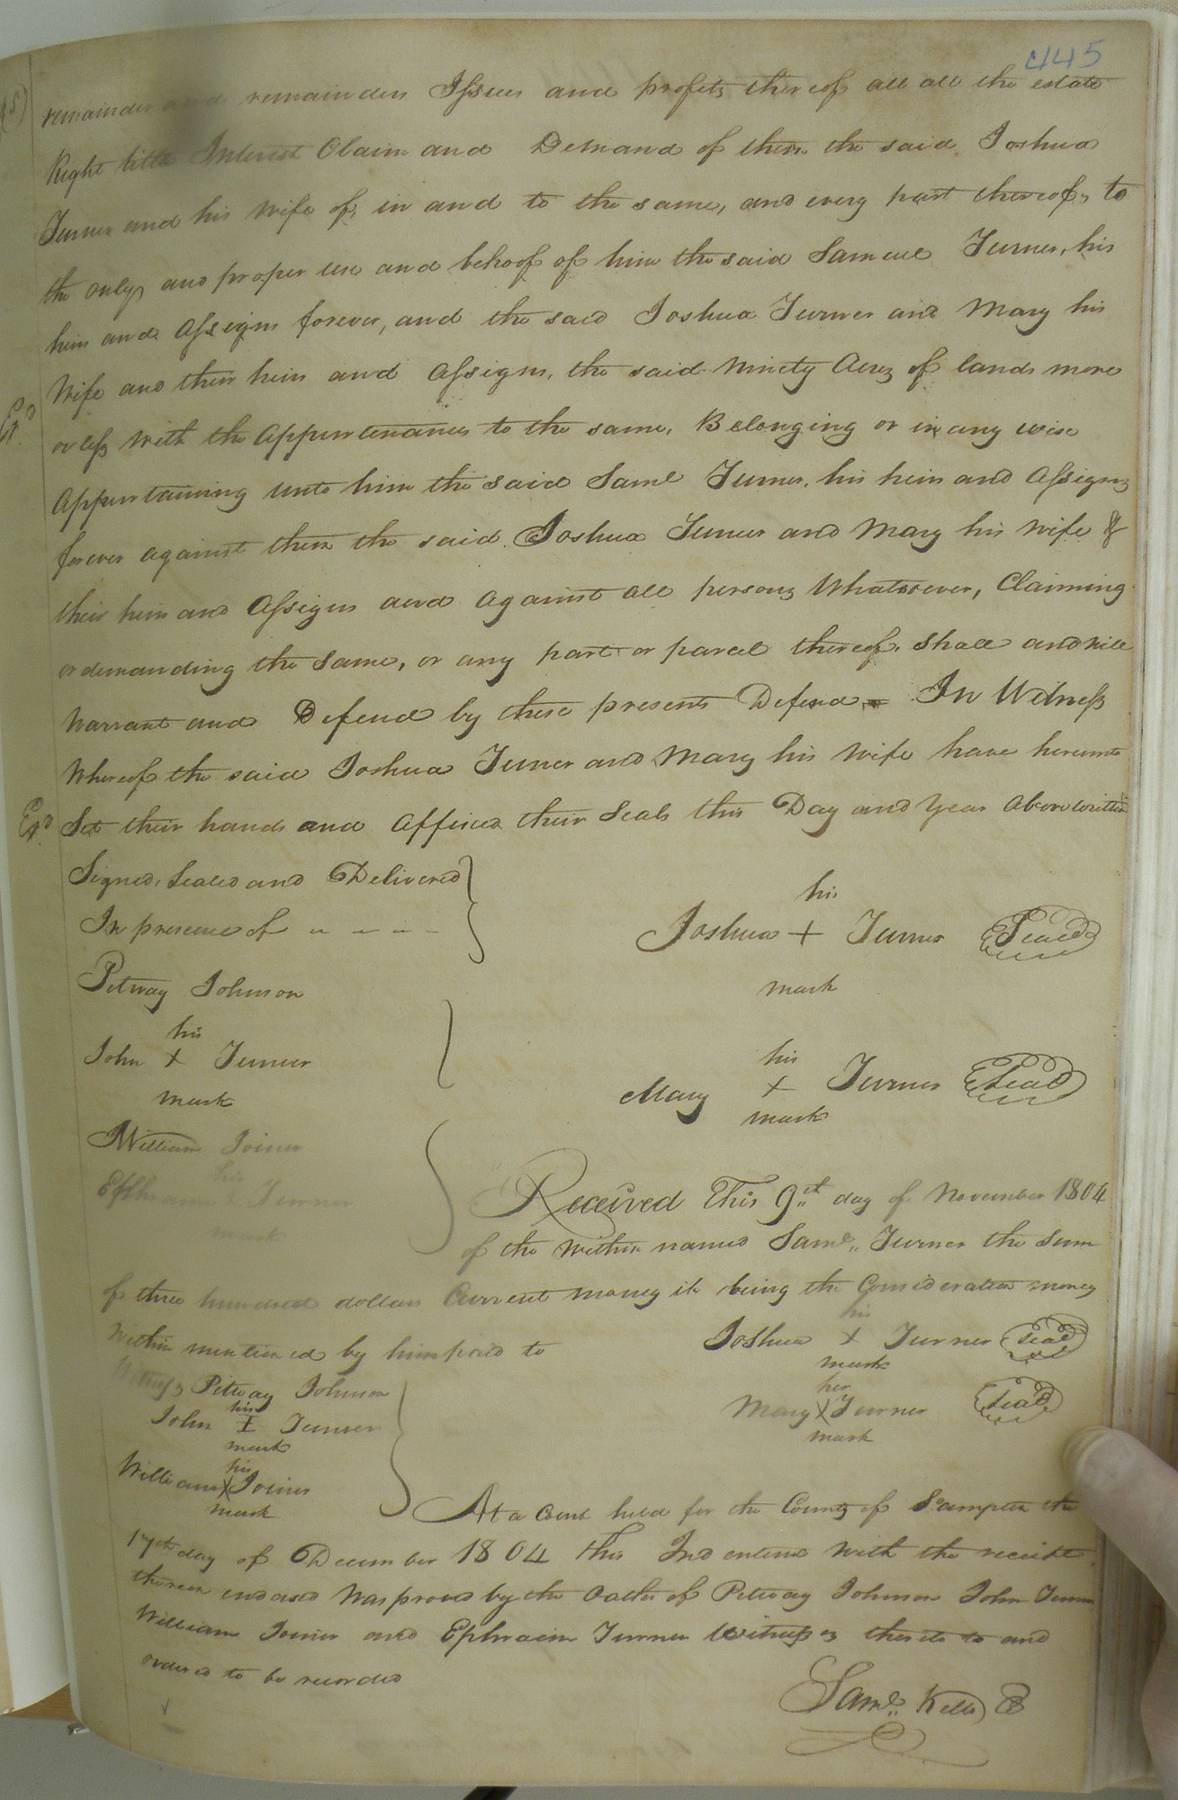 445
remainder and remainders Issues and profits thereof all all the estate
Right title Interest Claim and Demand of them the said Joshua
Turner and his wife of, in and to the same, and every part thereof, to
the only and proper use and behoof of him the said Samuel Turner, his
heirs and Assigns forever, and the said Joshua Turner and Mary his
Wife and their heirs and Assigns, the said Ninety Acres of lands more
or less with the Appurtenances to the same, Belonging or in any wise
Appurtaining unto him the said Saml Turner, his heirs and Assigns
forever against them the said Joshua Turner and Mary his wife &
their heirs and Assigns and Against all persons Whatsoever, Claiming
or demanding the Same, or any part or parcel thereof, shall and will
Warrant and Defend by these presents Defend In Witness
Whereof the said Joshua Turner and Mary his Wife have hereunto
Ex'd Set their hands and Affixed their Seals this Day and Year Above written
Signed, Sealed and Delivered
In presence of
his
Joshua + Turner Seal
mark
Petway Johnson
his
John + Turner
mark
his
Mary + Turner Seal
mark
William Joiner
his
Ephraim + Turner
mark
Received This 9th day of November 1804
of the within named Saml. Turner the Sum
of three hundred dollars Current money it being the Consideration money
Within mentioned by him paid to
his
Joshua + Turner Seal
mark
Witness Petway Johnson
his
John I Turner
mark
her
Mary X Turner Seal
mark
his
William X Joiner
mark
At a Court held for the County of Southampton the
17th day of December 1804 This Indenture with the receipt
thereon endorsed Was proved by the Oaths of Petway Johnson John Turner
William Joiner and Ephraim Turner Witnesses thereto and
ordered to be recorded
Saml. Kello